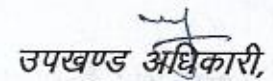 उपखण्ड अधिकारी,